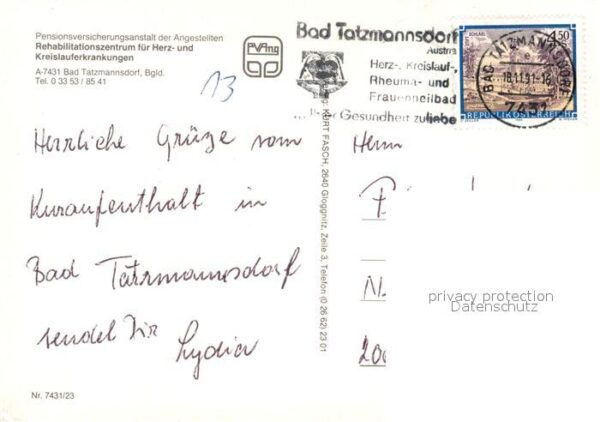 Pensionsversicherungsanstalt der Angestellten
Rehabilitationszentrum für Herz- und
Kreislauferkrankungen
A-7431 Bad Tatzmannsdorf, Bgld.
Tel. 0 33 53 / 85 41
PVAng
13
Bad Tatzmannsdorf
Austria
Herz-, Kreislauf-,
Rheuma- und
Frauenheilbad
Gesundheit zuliebe
4.50
REPUBLIK ÖSTERREICH
BAD TATZMANNSDORF
18.11.91-18
7431
Herzliche Grüße vom
Kuraufenthalt in
Bad Tatzmannsdorf
sendet Dir
Lydia
KURT FASCH, 2640 Gloggnitz, Zeile 3, Telefon (0 26 62) 23 01
Herrn
privacy protection
Datenschutz
Nr. 7431/23